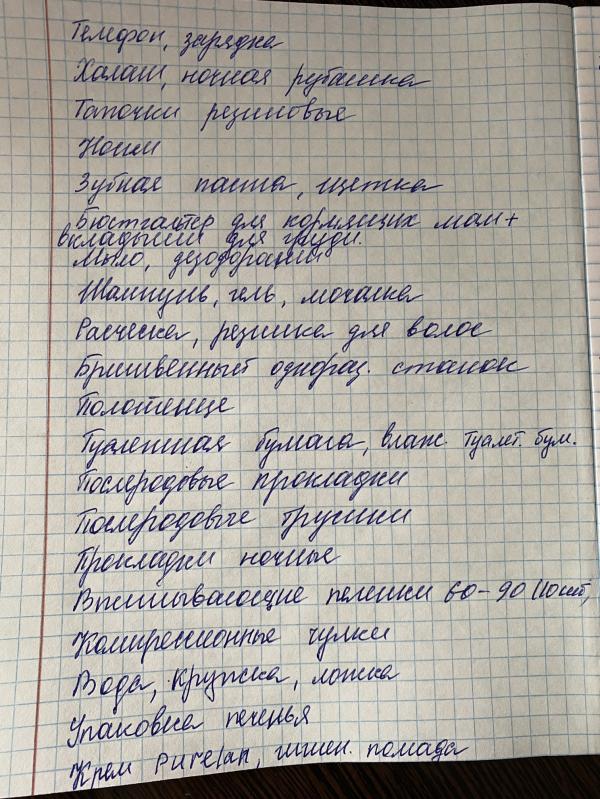 Телефон, зарядка
Халат, ночная рубашка
Тапочки резиновые
Носки
Зубная паста, щетка
Бюстгальтер для кормящих мам +
вкладыши для груди.
Мыло, дезодорант
Шампунь, гель, мочалка
Расческа, резинка для волос
Бритвенный однораз. станок
Полотенце
Туалетная бумага, влаж. туалет. бум.
Послеродовые прокладки
Послеродовые трусики
Прокладки ночные
Впитывающие пеленки 60-90 (10 шт,
Компрессионные чулки
Вода, кружка, ложка
Упаковка печенья
Крем Purelan, гигиен. помада